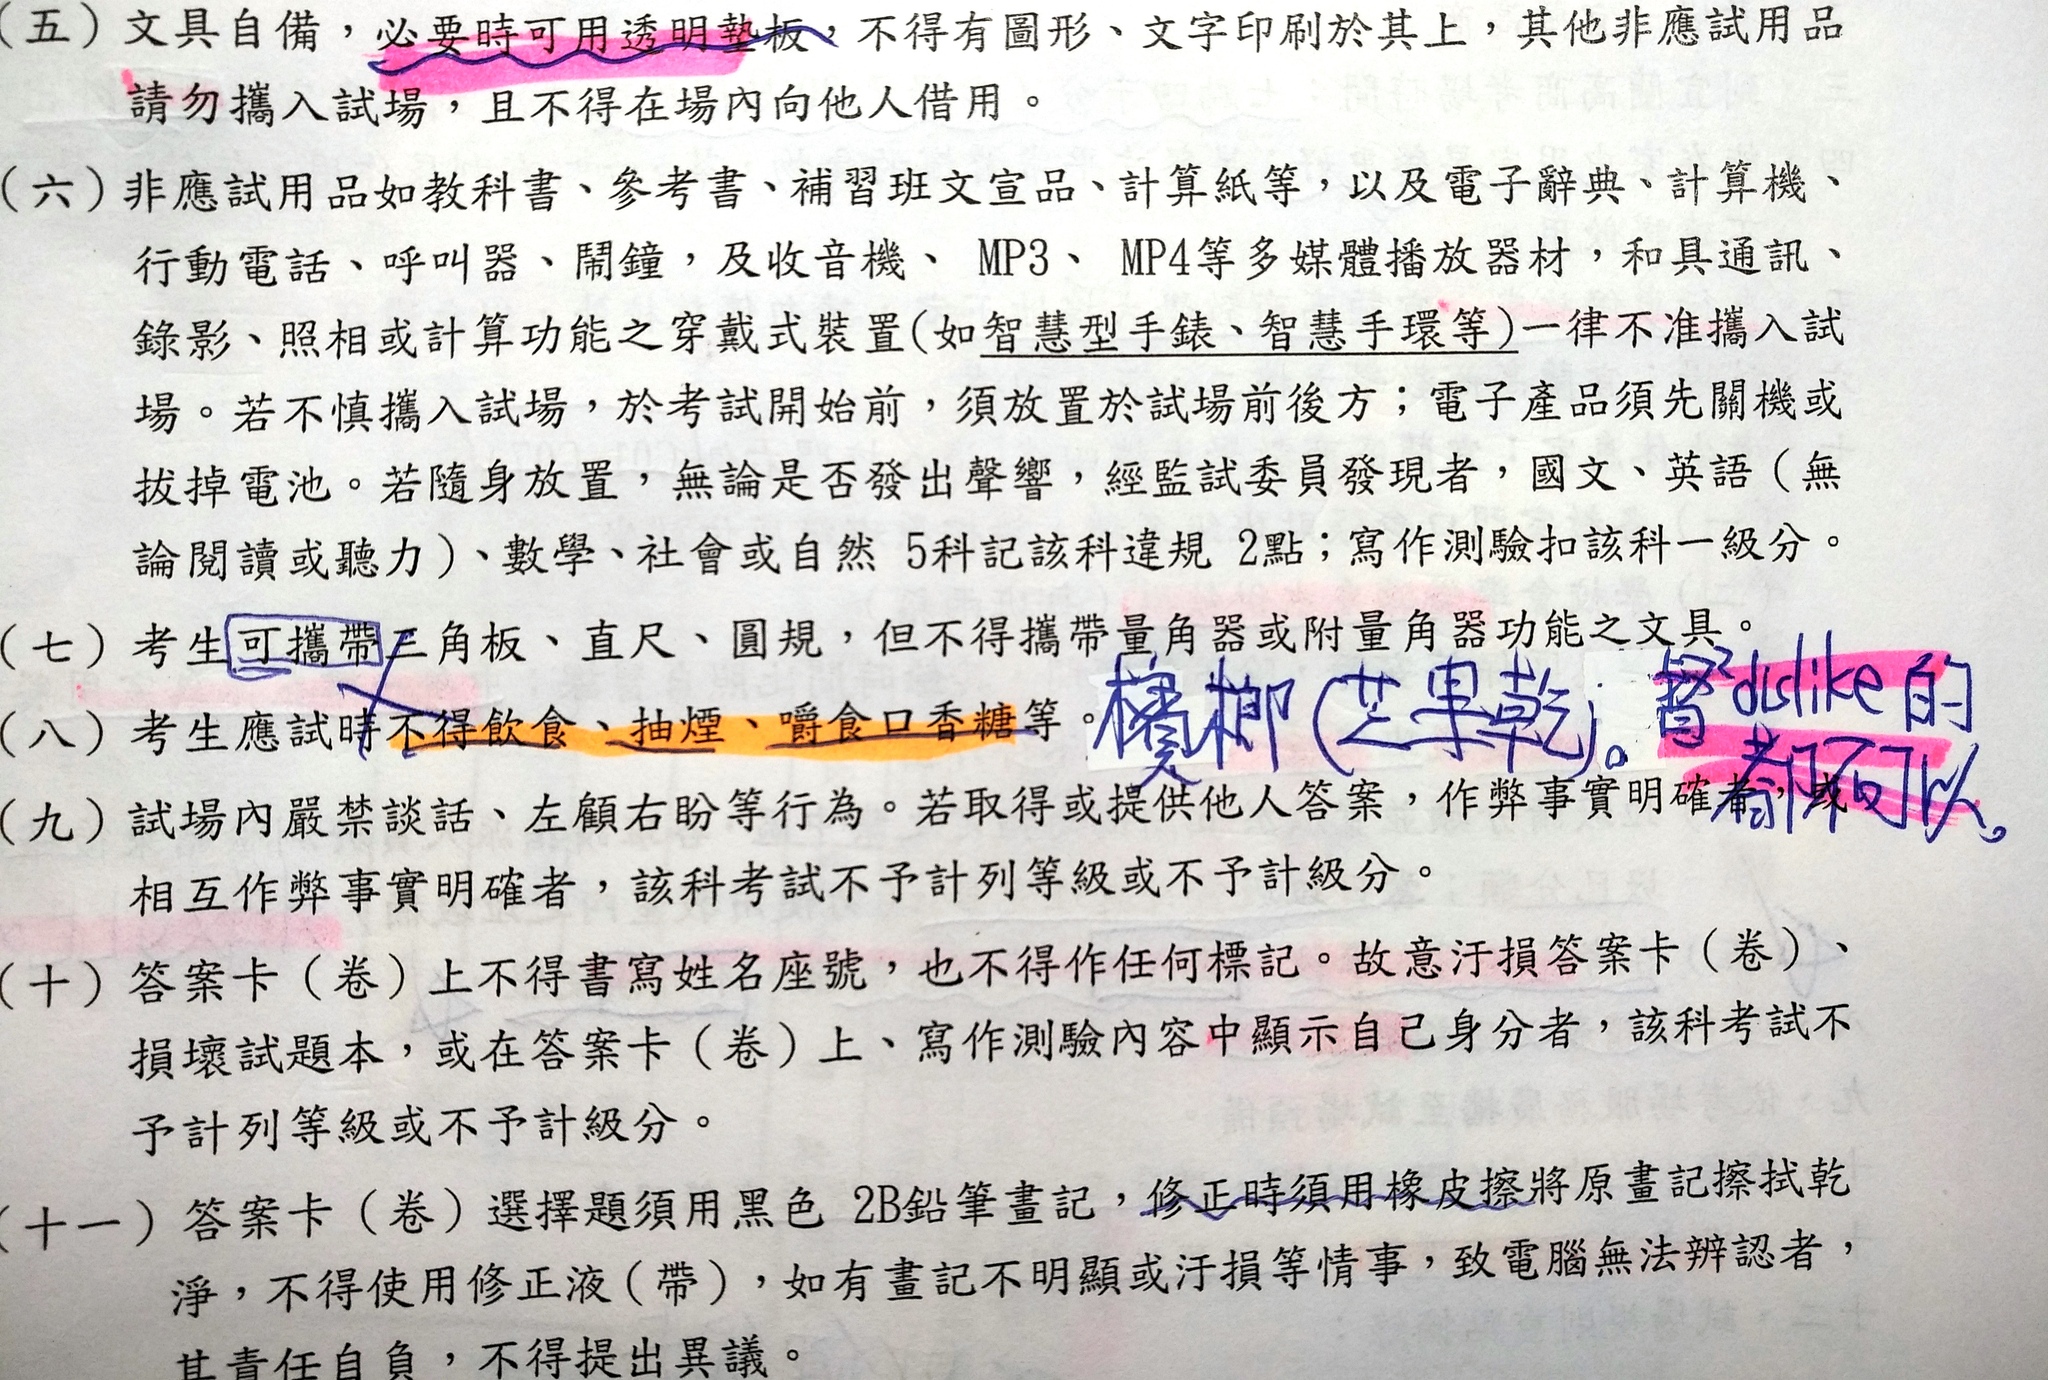 （五）文具自備，必要時可用透明墊板，不得有圖形、文字印刷於其上，其他非應試用品
請勿攜入試場，且不得在場內向他人借用。
（六）非應試用品如教科書、參考書、補習班文宣品、計算紙等，以及電子辭典、計算機、
行動電話、呼叫器、鬧鐘，及收音機、 MP3、 MP4等多媒體播放器材，和具通訊、
錄影、照相或計算功能之穿戴式裝置(如智慧型手錶、智慧手環等)一律不准攜入試
場。若不慎攜入試場，於考試開始前，須放置於試場前後方；電子產品須先關機或
拔掉電池。若隨身放置，無論是否發出聲響，經監試委員發現者，國文、英語（無
論閱讀或聽力）、數學、社會或自然 5科記該科違規 2點；寫作測驗扣該科一級分。
（七）考生可攜帶三角板、直尺、圓規，但不得攜帶量角器或附量角器功能之文具。
（八）考生應試時不得飲食、抽煙、嚼食口香糖等。檳榔(芒果乾)。dislike的
都不可以。
（九）試場內嚴禁談話、左顧右盼等行為。若取得或提供他人答案，作弊事實明確者，或
相互作弊事實明確者，該科考試不予計列等級或不予計級分。
（十）答案卡（卷）上不得書寫姓名座號，也不得作任何標記。故意汙損答案卡（卷）、
損壞試題本，或在答案卡（卷）上、寫作測驗內容中顯示自己身分者，該科考試不
予計列等級或不予計級分。
（十一）答案卡（卷）選擇題須用黑色 2B鉛筆畫記，修正時須用橡皮擦將原畫記擦拭乾
淨，不得使用修正液（帶），如有畫記不明顯或汙損等情事，致電腦無法辨認者，
其責任自負，不得提出異議。